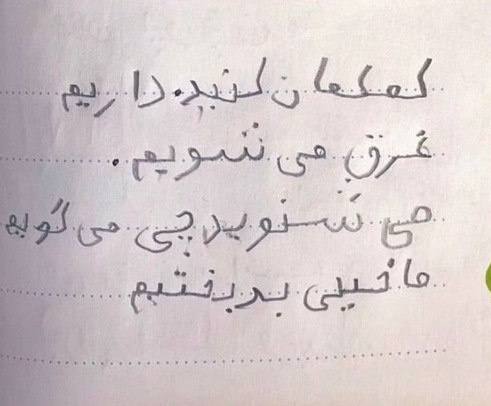 کمکمان کنید. داریم
غرق می شویم.
می شنوید چی می گویم
ما خیلی بدبختیم